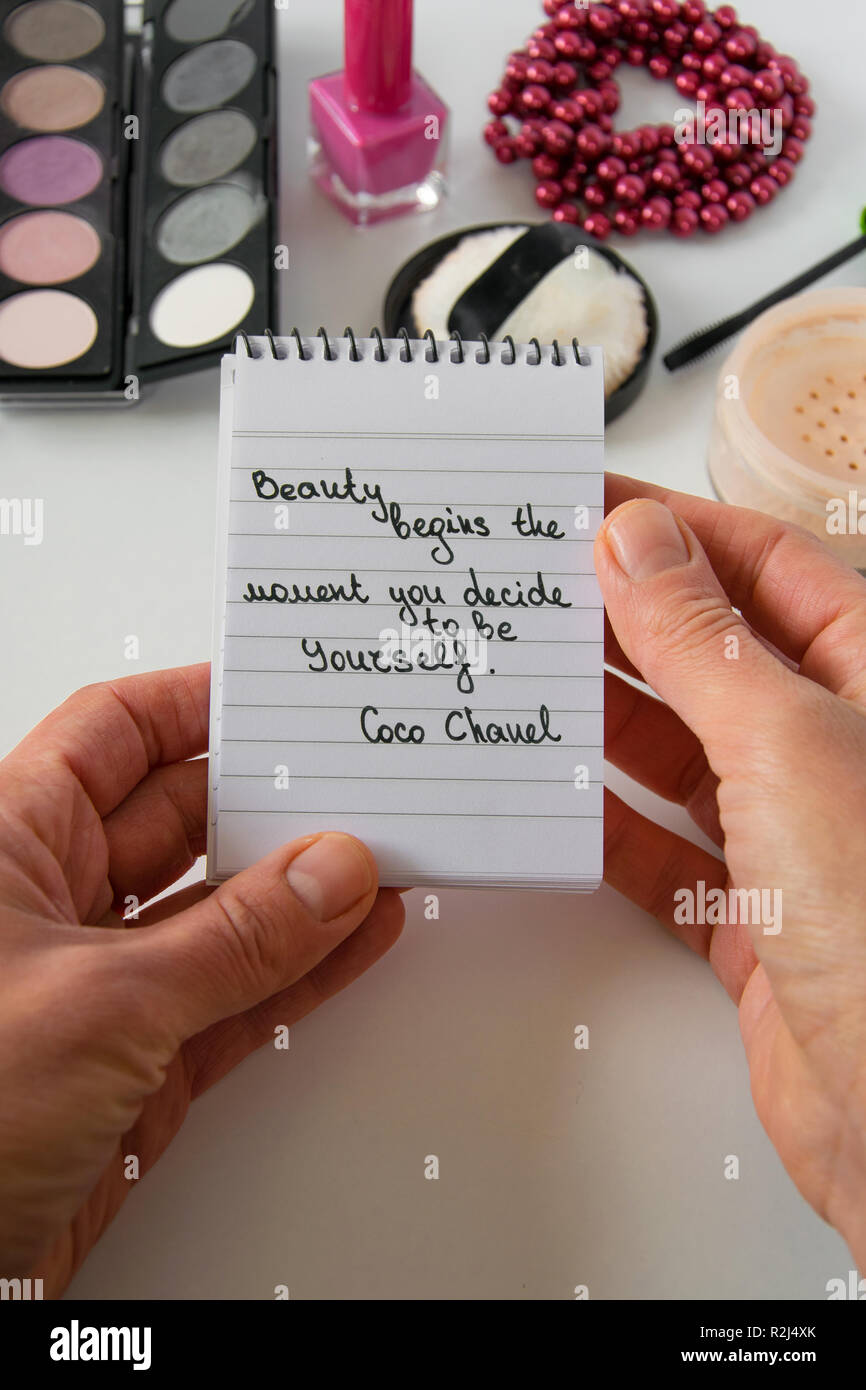 Beauty
begins the
moment you decide
to be
yourself.
Coco Chanel
a alamy stock photo
alamy
Image ID: R2J4XK
www.alamy.com